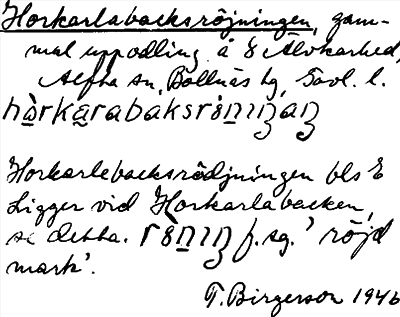 Horkarlabacksröjningen, gam-
mal uppodling å 8 Älvkarhed,
Alfta sn, Bollnäs tg, Gävl. l.
hòrkarabaksrönıŋaŋ
Horkarlebacksrödjningen bls E
Ligger vid Horkarlabacken,
se detta. rönıŋ f. sg. ' röjd
mark'.
T. Birgerson 1946